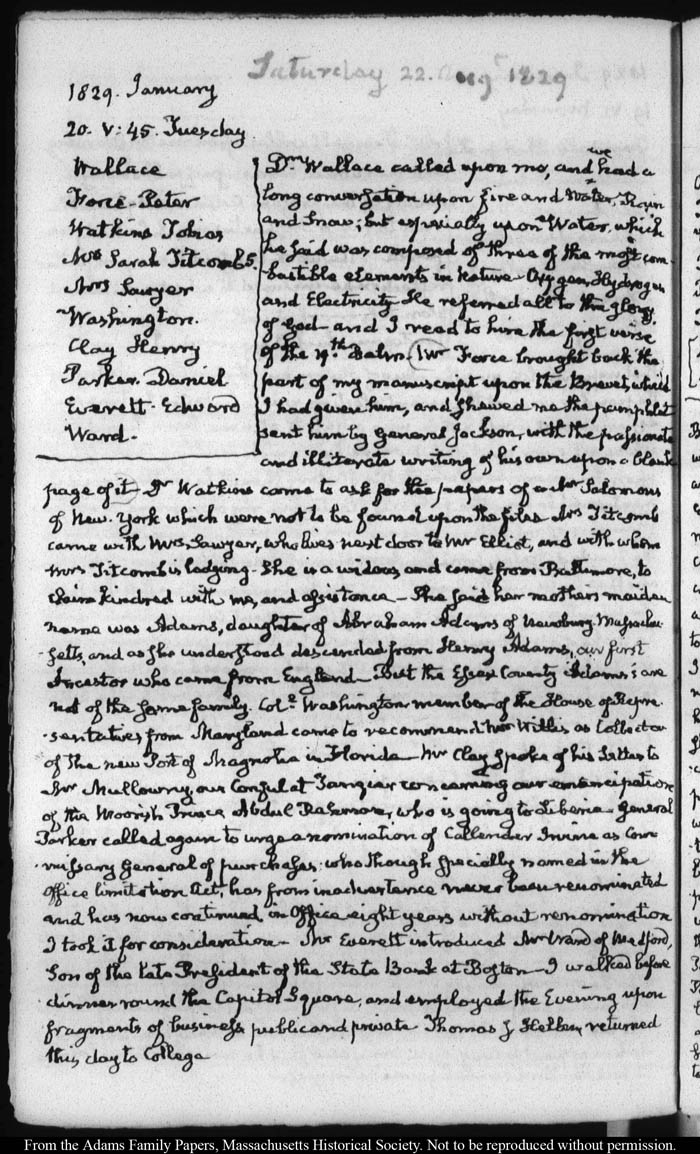 Saturday 22. Augt 1829
1829. January
20. V: 45. Tuesday.
Wallace
Force-Peter
Watkins Tobias
Mrs Sarah Titcomb 5.
Mrs Sawyer
Washington.
Clay Henry
Parker. Daniel
Everett-Edward
Ward.
Dr Wallace called upon me, and we had a
long conversation upon fire and Water,
and Snow; but especially upon Water, which
he said was composed of three of the most com-
-bustible elements in Nature-Oxygen, Hydrogen
and Electricity He referred all to the glory
of God-and I read to him the first verse
of the 19th Psalm. Mr Force brought back the
part of my manuscript upon the Brevet, which
I had given him, and shewed me the pamphlet
sent him by General Jackson, with the passionate
and illiterate writing of his own upon a blank
page of it- Dr Watkins came to ask for the papers of a Mr Salomons
of New-York which were not to be found upon the files Mrs Titcomb
came with Mrs Sawyer, who lives next door to Mr Elliot, and with whom
Mrs Titcomb is lodging-She is a widow, and came from Baltimore, to
claim kindred with me, and assistance-She said her mothers maiden
name was Adams, daughter of Abraham Adams of Newbury Massachu-
-setts, and as she understood descended from Henry Adams, our first
Ancestor who came from England-But the Essex County Adams's are
not of the same family. Coll Washington member of the House of Repre-
-sentatives from Maryland came to recommend Mr Willis as Collector
of the new Port of Magnolia in Florida-Mr Clay spoke of his Letter to
Mr Mullowny, our Consul at Tangier concerning our emancipation
of the Moorish Prince Abdul Rahman, who is going to Liberia-General
Parker called again to urge a nomination of Callender Irvine as Com-
-missary General of purchases: who though specially named in the
Office limitation Act, has from inadvertence never been renominated
and has now continued in Office eight years without renomination
I took it for consideration-Mr Everett introduced Mr Ward of Medford,
Son of the late President of the State Bank at Boston-I walked before
dinner round the Capitol Square, and employed the Evening upon
fragments of business public and private Thomas J Hellen returned
this day to College
From the Adams Family Papers, Massachusetts Historical Society. Not to be reproduced without permission.